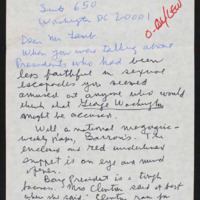 Suite 650
Washington DC 20001
Dear Mr Lamb
When you were talking about
Presidents who had been
less faithful in sexual
escapades you seemed
amused at anyone who would
think that George Washington
might be accused.
Well a national magazine-
weekly paper, Barron's. The
enclosed red underlined
snippet is an eye and mind
opener.
Being President is a tough
Mrs Clinton said it best
when she said, Clinton ran for